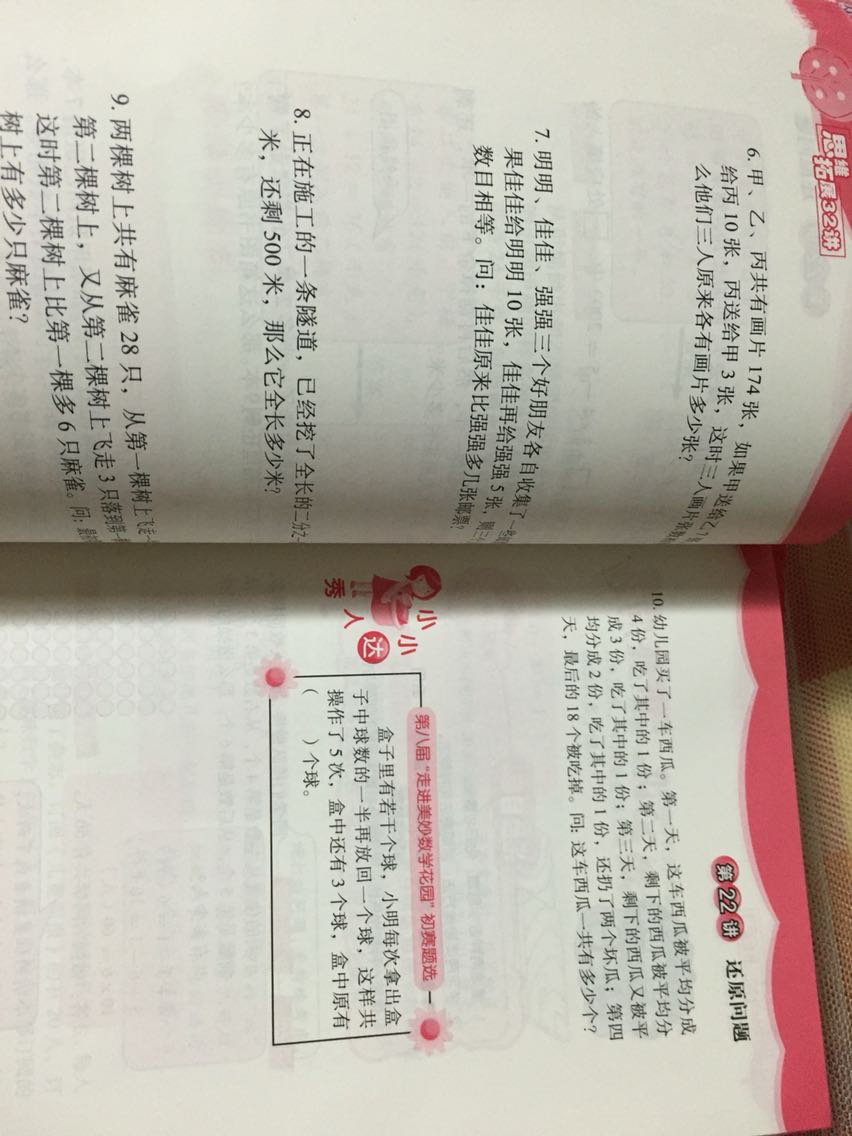 思维
拓展32讲
6. 甲、乙、丙共有画片 174 张，如果甲送给乙 7
给丙 10 张，丙送给甲 3 张，这时三人画片张
么他们三人原来各有画片多少张？
7. 明明、佳佳、强强三个好朋友各自收集了一些
果佳佳给明明 10 张，佳佳再给强强 5 张，则三
数目相等。问：佳佳原来比强强多几张邮票？
8. 正在施工的一条隧道，已经挖了全长的二分之一
米，还剩 500 米，那么它全长多少米？
9. 两棵树上共有麻雀 28 只，从第一棵树上飞走
第二棵树上，又从第二棵树上飞走 3 只落到第一
这时第二棵树上比第一棵多 6 只麻雀。问：
树上有多少只麻雀？
第22讲 还原问题
10. 幼儿园买了一车西瓜。第一天，这车西瓜被平均分成
4 份，吃了其中的 1 份；第二天，剩下的西瓜被平均分
成 3 份，吃了其中的 1 份；第三天，剩下的西瓜又被平
均分成 2 份，吃了其中的 1 份，还扔了两个坏瓜；第四
天，最后的 18 个被吃掉。问：这车西瓜一共有多少个？
小小达人秀
第八届“走进美妙数学花园”初赛题选
盒子里有若干个球，小明每次拿出盒
子中球数的一半再放回一个球，这样共
操作了 5 次，盒中还有 3 个球，盒中原有
（ ）个球。